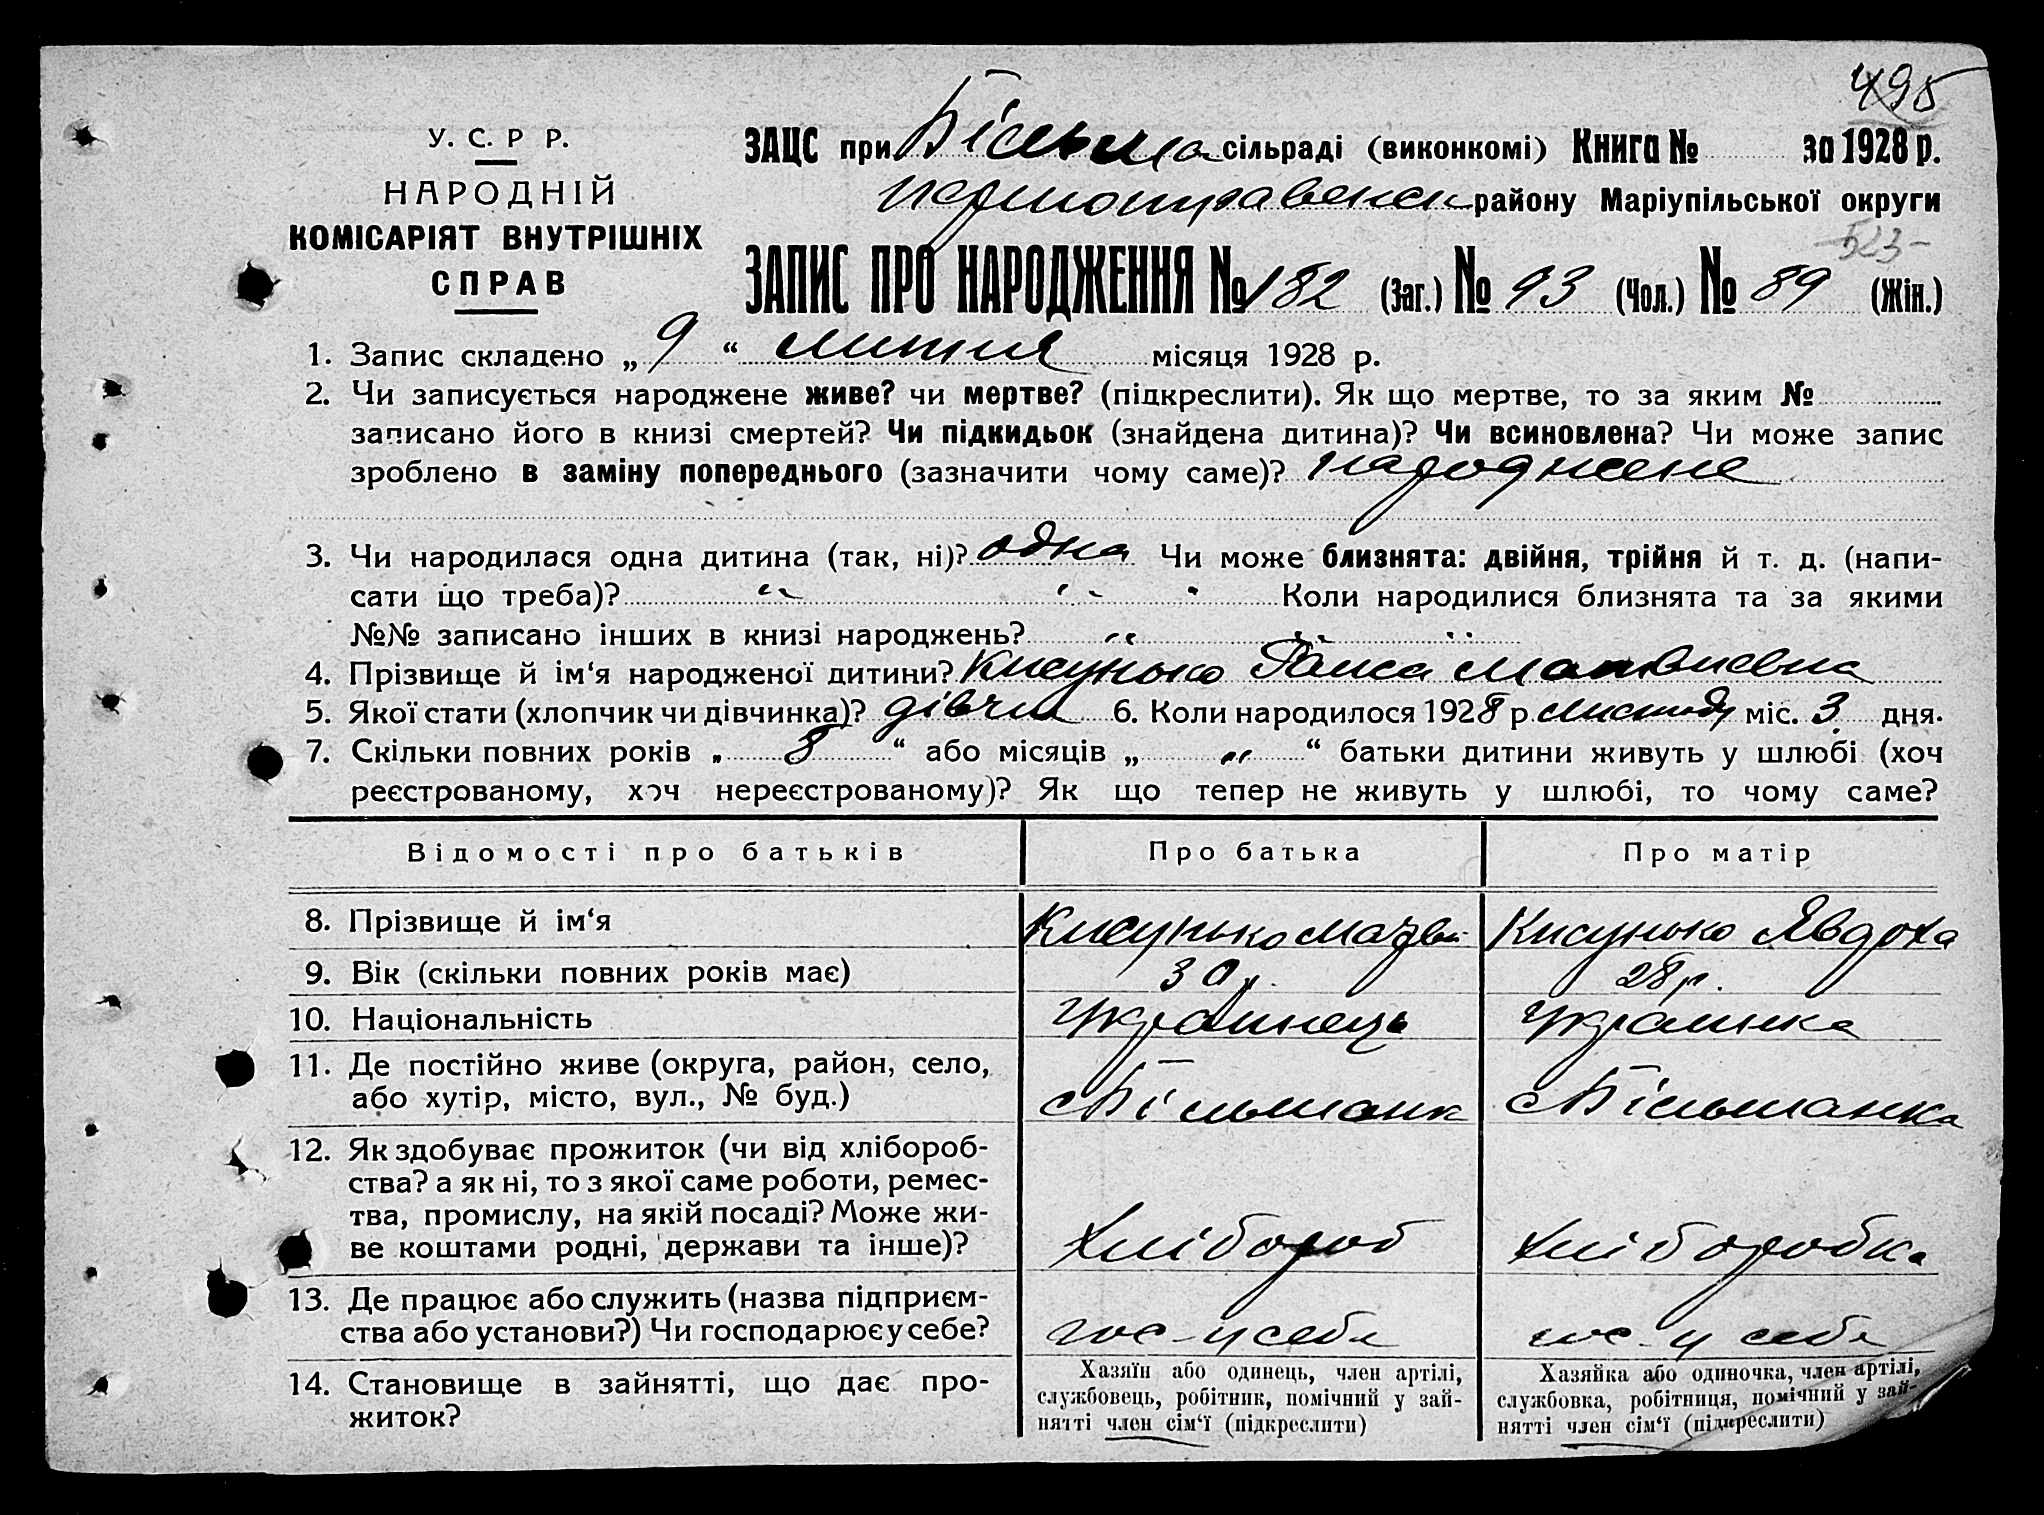 495
У. С. Р Р.
НАРОДНІЙ
КОМІСАРІЯТ ВНУТРІШНІХ
СПРАВ
ЗАЦС при Більма сільраді (виконкомі) Книга № за 1928 р.
району Маріупільської округи
523
ЗАПИС ПРО НАРОДЖЕННЯ № 182 (Заг.) № 93 (Чол.) № 89 (Жін.)
1. Запис складено „ 9 “ місяця 1928 р.
2. Чи записується народжене живе? чи мертве? (підкреслити). Як що мертве, то за яким №
записано його в книзі смертей? Чи підкидьок (знайдена дитина)? Чи всиновлена? Чи може запис
зроблено в заміну попереднього (зазначити чому саме)? народжене
3. Чи народилася одна дитина (так, ні)? одна Чи може близнята: двійня, трійня й т. д. (напи-
сати що треба)? Коли народилися близнята та за якими
№№ записано інших в книзі народжень?
4. Прізвище й ім‘я народженої дитини? Кисунько Раиса Матвиевна
5. Якої стати (хлопчик чи дівчинка)? дівчи 6. Коли народилось 1928 р. міс. 3 дня.
7. Скільки повних років „ 8 “ або місяців „ “ батьки дитини живуть у шлюбі (хоч
реєстрованому, хоч нереєстрованому)? Як що тепер не живуть у шлюбі, то чому саме?
Відомості про батьків Про батька Про матір
8. Прізвище й ім‘я Кисунько Матвій Кисунько Явдоха
9. Вік (скільки повних років має) 30 р. 28 р.
10. Національність Украинець Украинка
11. Де постійно живе (округа, район, село,
або хутір, місто, вул., № буд.) с Більманк с Більманка
12. Як здобуває прожиток (чи від хлібороб-
ства? а як ні, то з якої саме роботи, ремес-
тва, промислу, на якій посаді? Може жи-
ве коштами родні, держави та інше)? Хлібороб Хліборобка
13. Де працює або служить (назва підприєм-
ства або установи?) Чи господарює у себе? гос-у себе гос-у себе
14. Становище в зайнятті, що дає про-
житок?
Хазяїн або одинець, член артілі,
службовець, робітник, помічний у зай-
нятті член сім‘ї (підкреслити)
Хазяйка або одиночка, член артілі,
службовка, робітниця, помічний у зай-
нятті член сім‘ї (підкреслити)